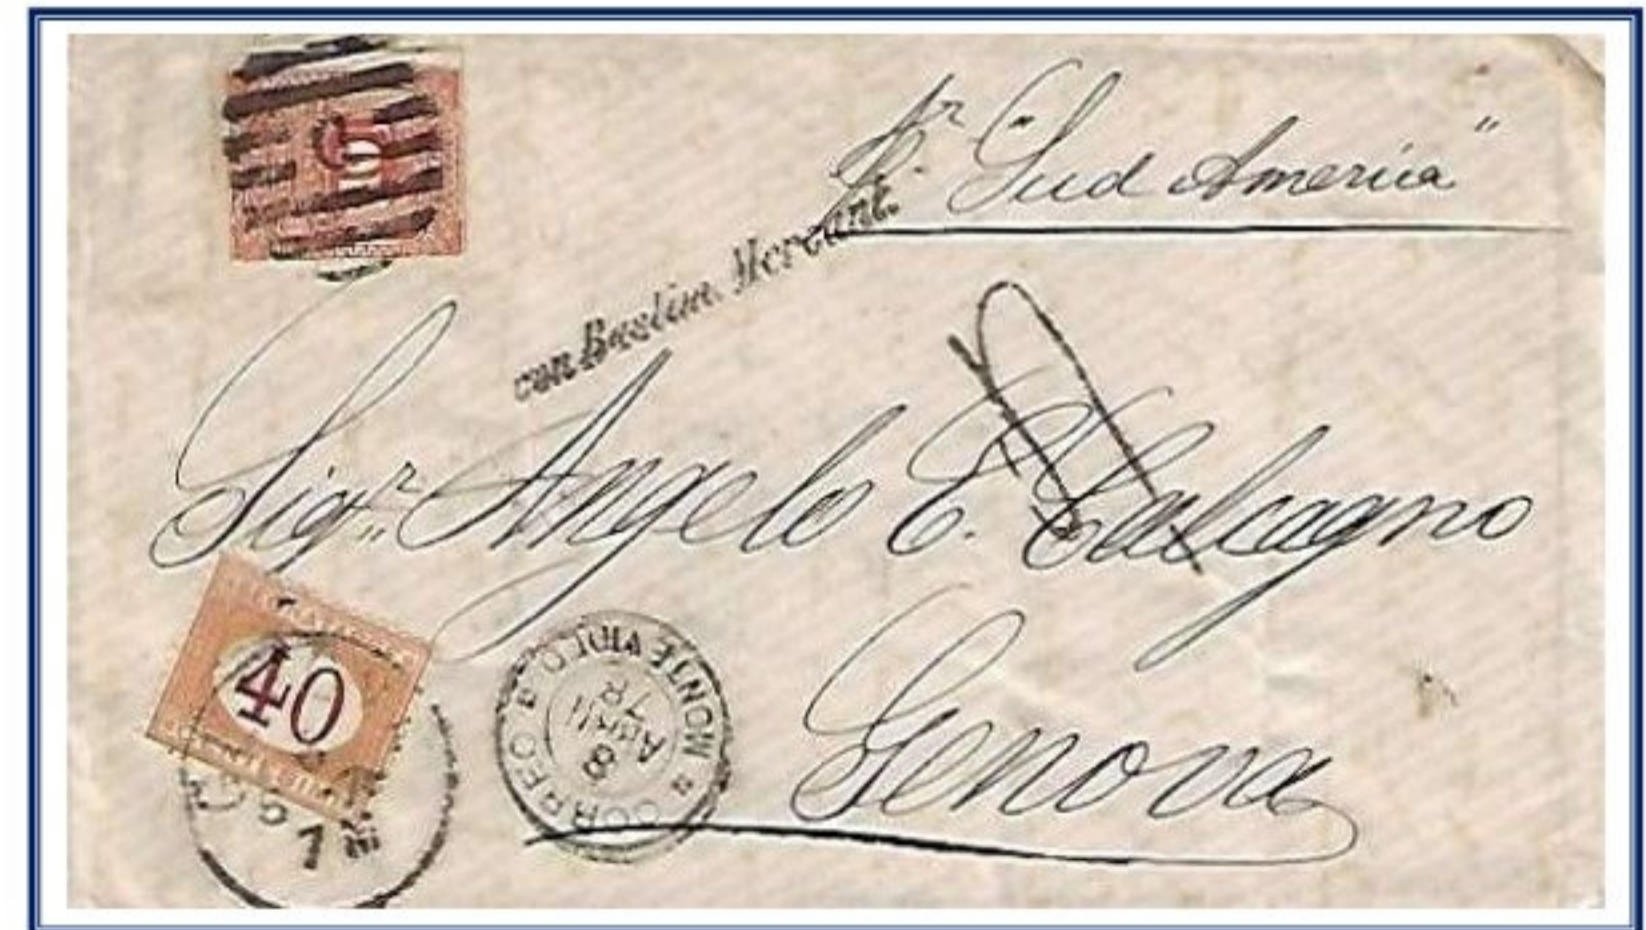 10
pr "Sud America"
con Bastim. Mercant.
Sigr. Angelo E. Calcagno
40
CORREO MONTEVIDEO
8
ABRIL
78
Genova